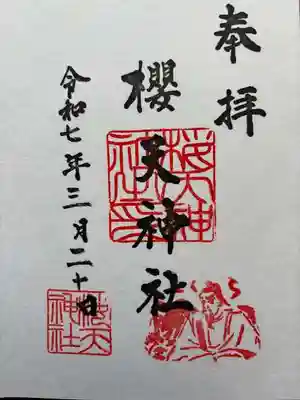 奉拝
櫻天神社
令和七年三月二十日
櫻天神社印
櫻天神社